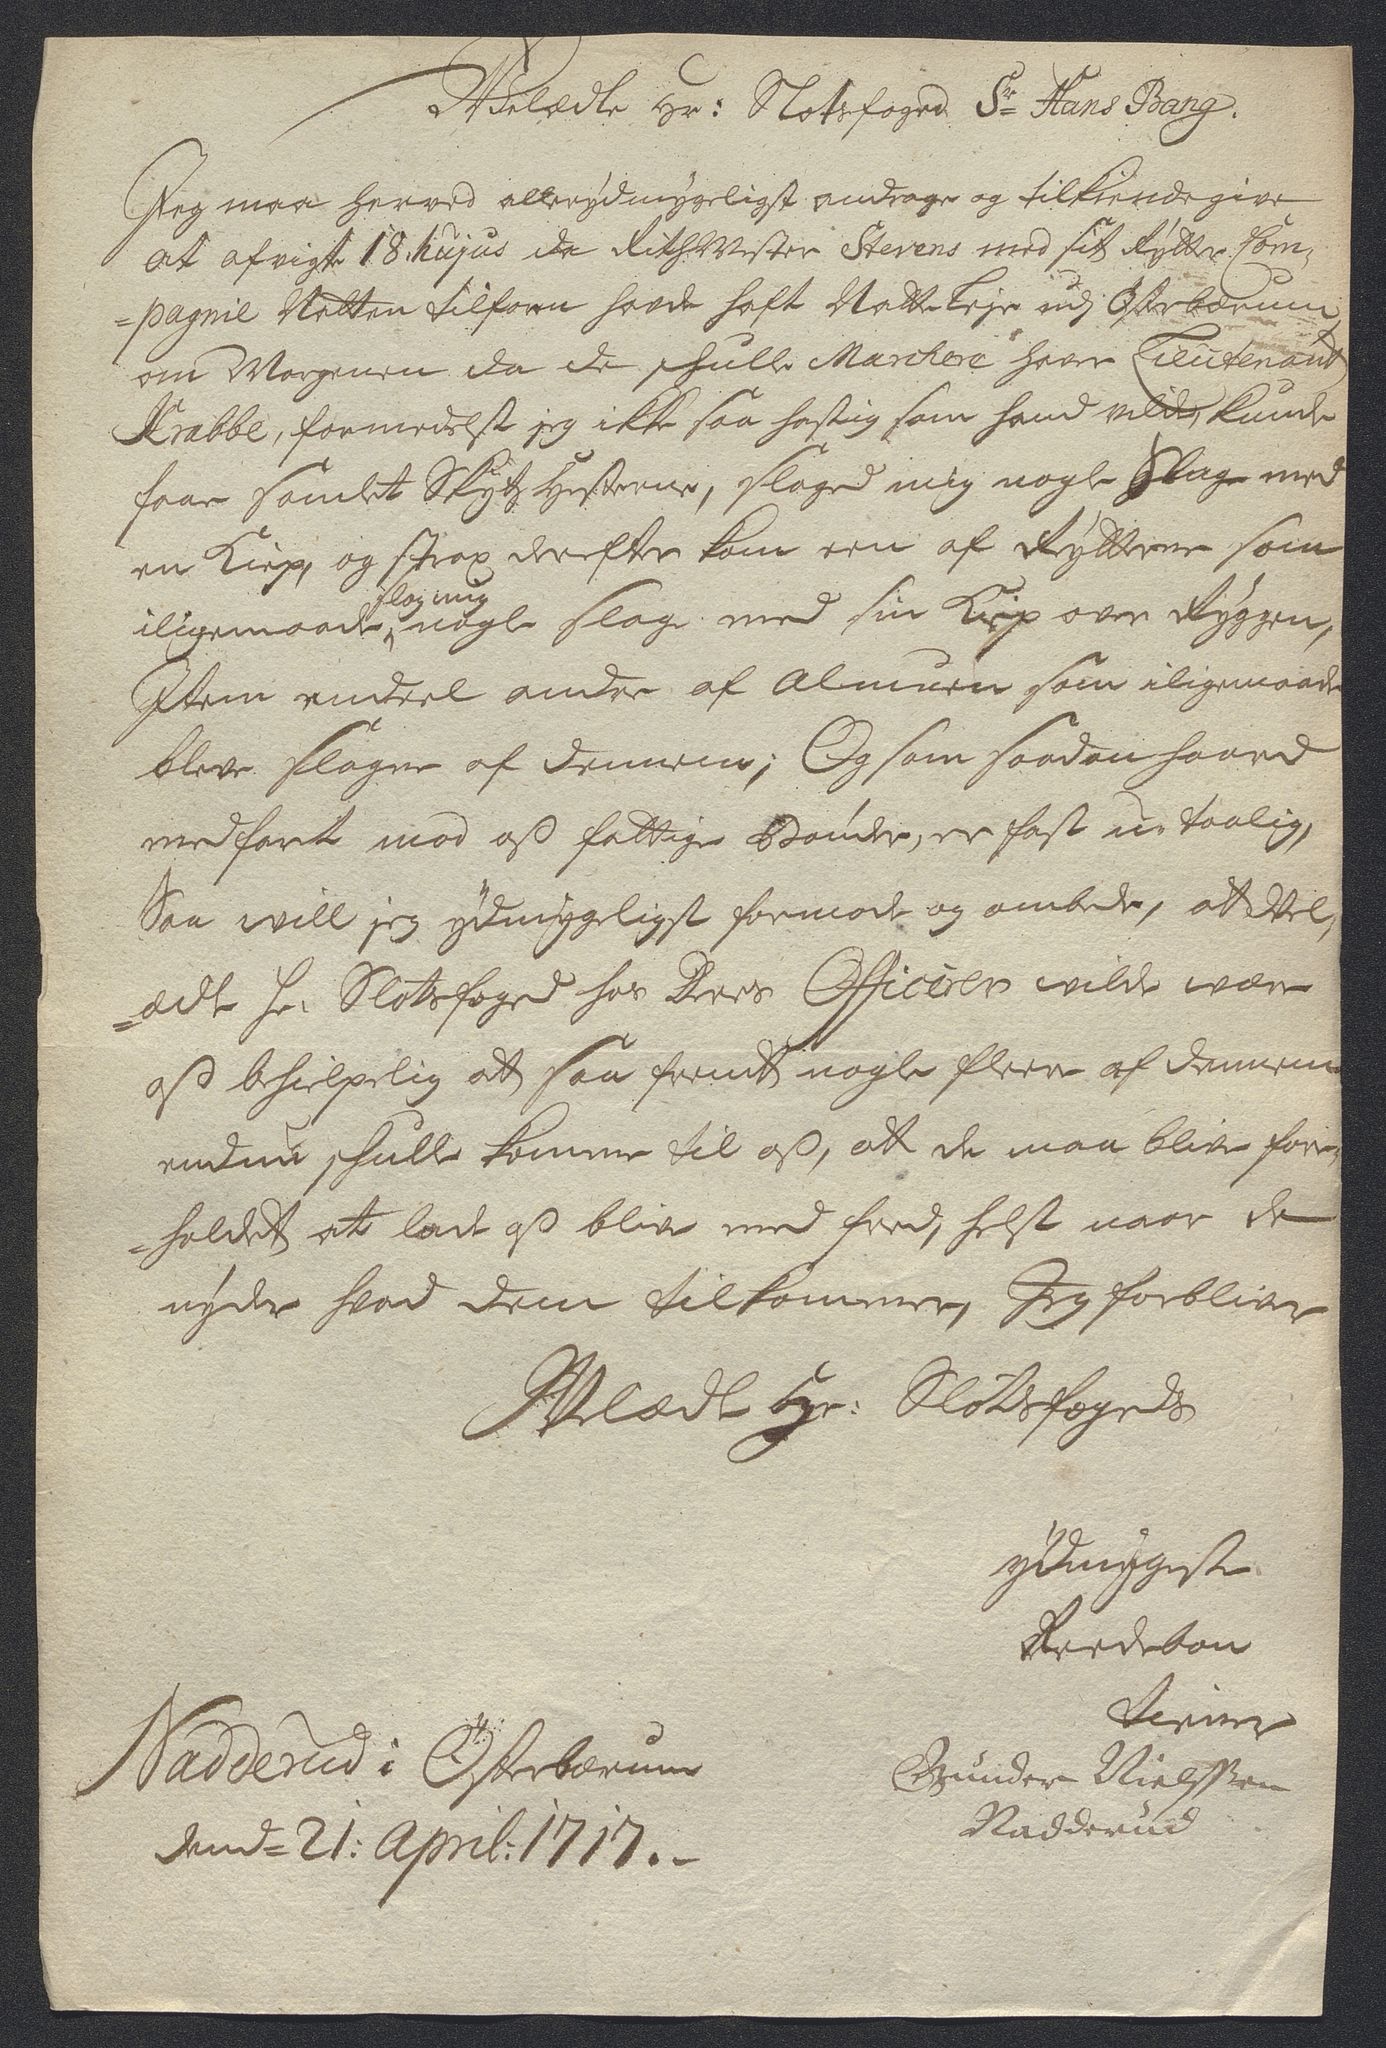 Velædle Hr: Slotsfoged Sr Hans Bang.
Jeg maa herved allerydmygeligst andrage og tilkiendegive
at afvigte 18. hujus da RithMester Stevens med sit Rytter Com,
=pagnie Natten tilforn hafde haft Natte Leje udj Østerbærum,
om Morgenen da de skulle Marchere haver Lieutenant
Krabbe, formedelst jeg ikke saa hastig som hand vilde, kunde
faae samlet Skytz Hesterne, slaged mig nogle Slag med
en Kiep, og strax derefter kom een af Rytterne som
iligemaade slog mig nogle slag med sin Kiep over Ryggen,
Item endeel andre af Almuen som iligemaade
bleve slagne af dennem; Og som saadan haard
medfart mod oß fattige Bønder, er fast u-taalig,
Saa will jeg ydmygeligst formode og ombede, att Vel,
=ædle Hr. Slotsfoged hos Deres Officerer wilde være
oß behielpelig att saa fremt nogle fleere af dennem
endnu skulle komme til oß, att de maa blive fore,
=holdet at lade oß blive med freed, helst naar de
nyder hvad dem tilkommer, Jeg forbliver
Velædle Hr: Slotsfogeds
ydmygeste
Reedebon
tiener
Gunder Nielssen
Nadderud
Nadderud i Østerbærum
dend= 21: April: 1717.-